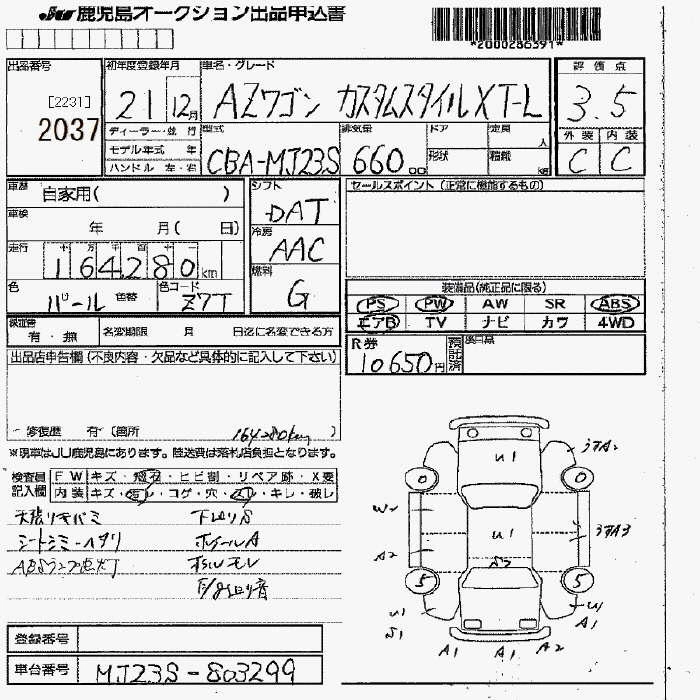 JU 鹿児島オークション出品申込書
*2000286391*
出品番号
[2231]
2037
初年度登録年月
21 12月
車名・グレード
AZワゴン カスタムスタイルXT-L
評価点
3.5
外装 内装
C C
ディーラー・並 行
モデル年式 年
ハンドル 左・右
型式
CBA-MJ23S
排気量
660 cc
ドア
形状
定員
人
積載
kg
車歴
自家用( )
車検
年 月( 日)
走行
十 万 千 百 十 一
164280 km
色
パール
色替
色コード
Z7T
シフト
DAT
冷房
AAC
燃料
G
セールスポイント (正常に機能するもの)
装備品(純正品に限る)
PS PW AW SR ABS
エアB TV ナビ カワ 4WD
有・無
名変期限 月 日迄に名変できる方
R券
10650円
預託済
出品店申告欄 (不良内容・欠品など具体的に記入して下さい)
修復歴 有 (箇所 )
164280km
※現車はJU鹿児島にあります。陸送費は落札店負担となります。
検査員記入欄
FW キズ・飛石・ヒビ割・リペア跡・X要
内装 キズ・汚レ・コゲ・穴・スレ・キレ・破レ
天張リキバミ
シートシミ・ヘタリ
ABSランプ点灯
下回りS
ホイールA
オイルモレ
登録番号
車台番号
MJ23S-803299
U1
0
0
W2
U1
A2
S2
5
5
U1
S1
U1
A1
A1
A1
A2